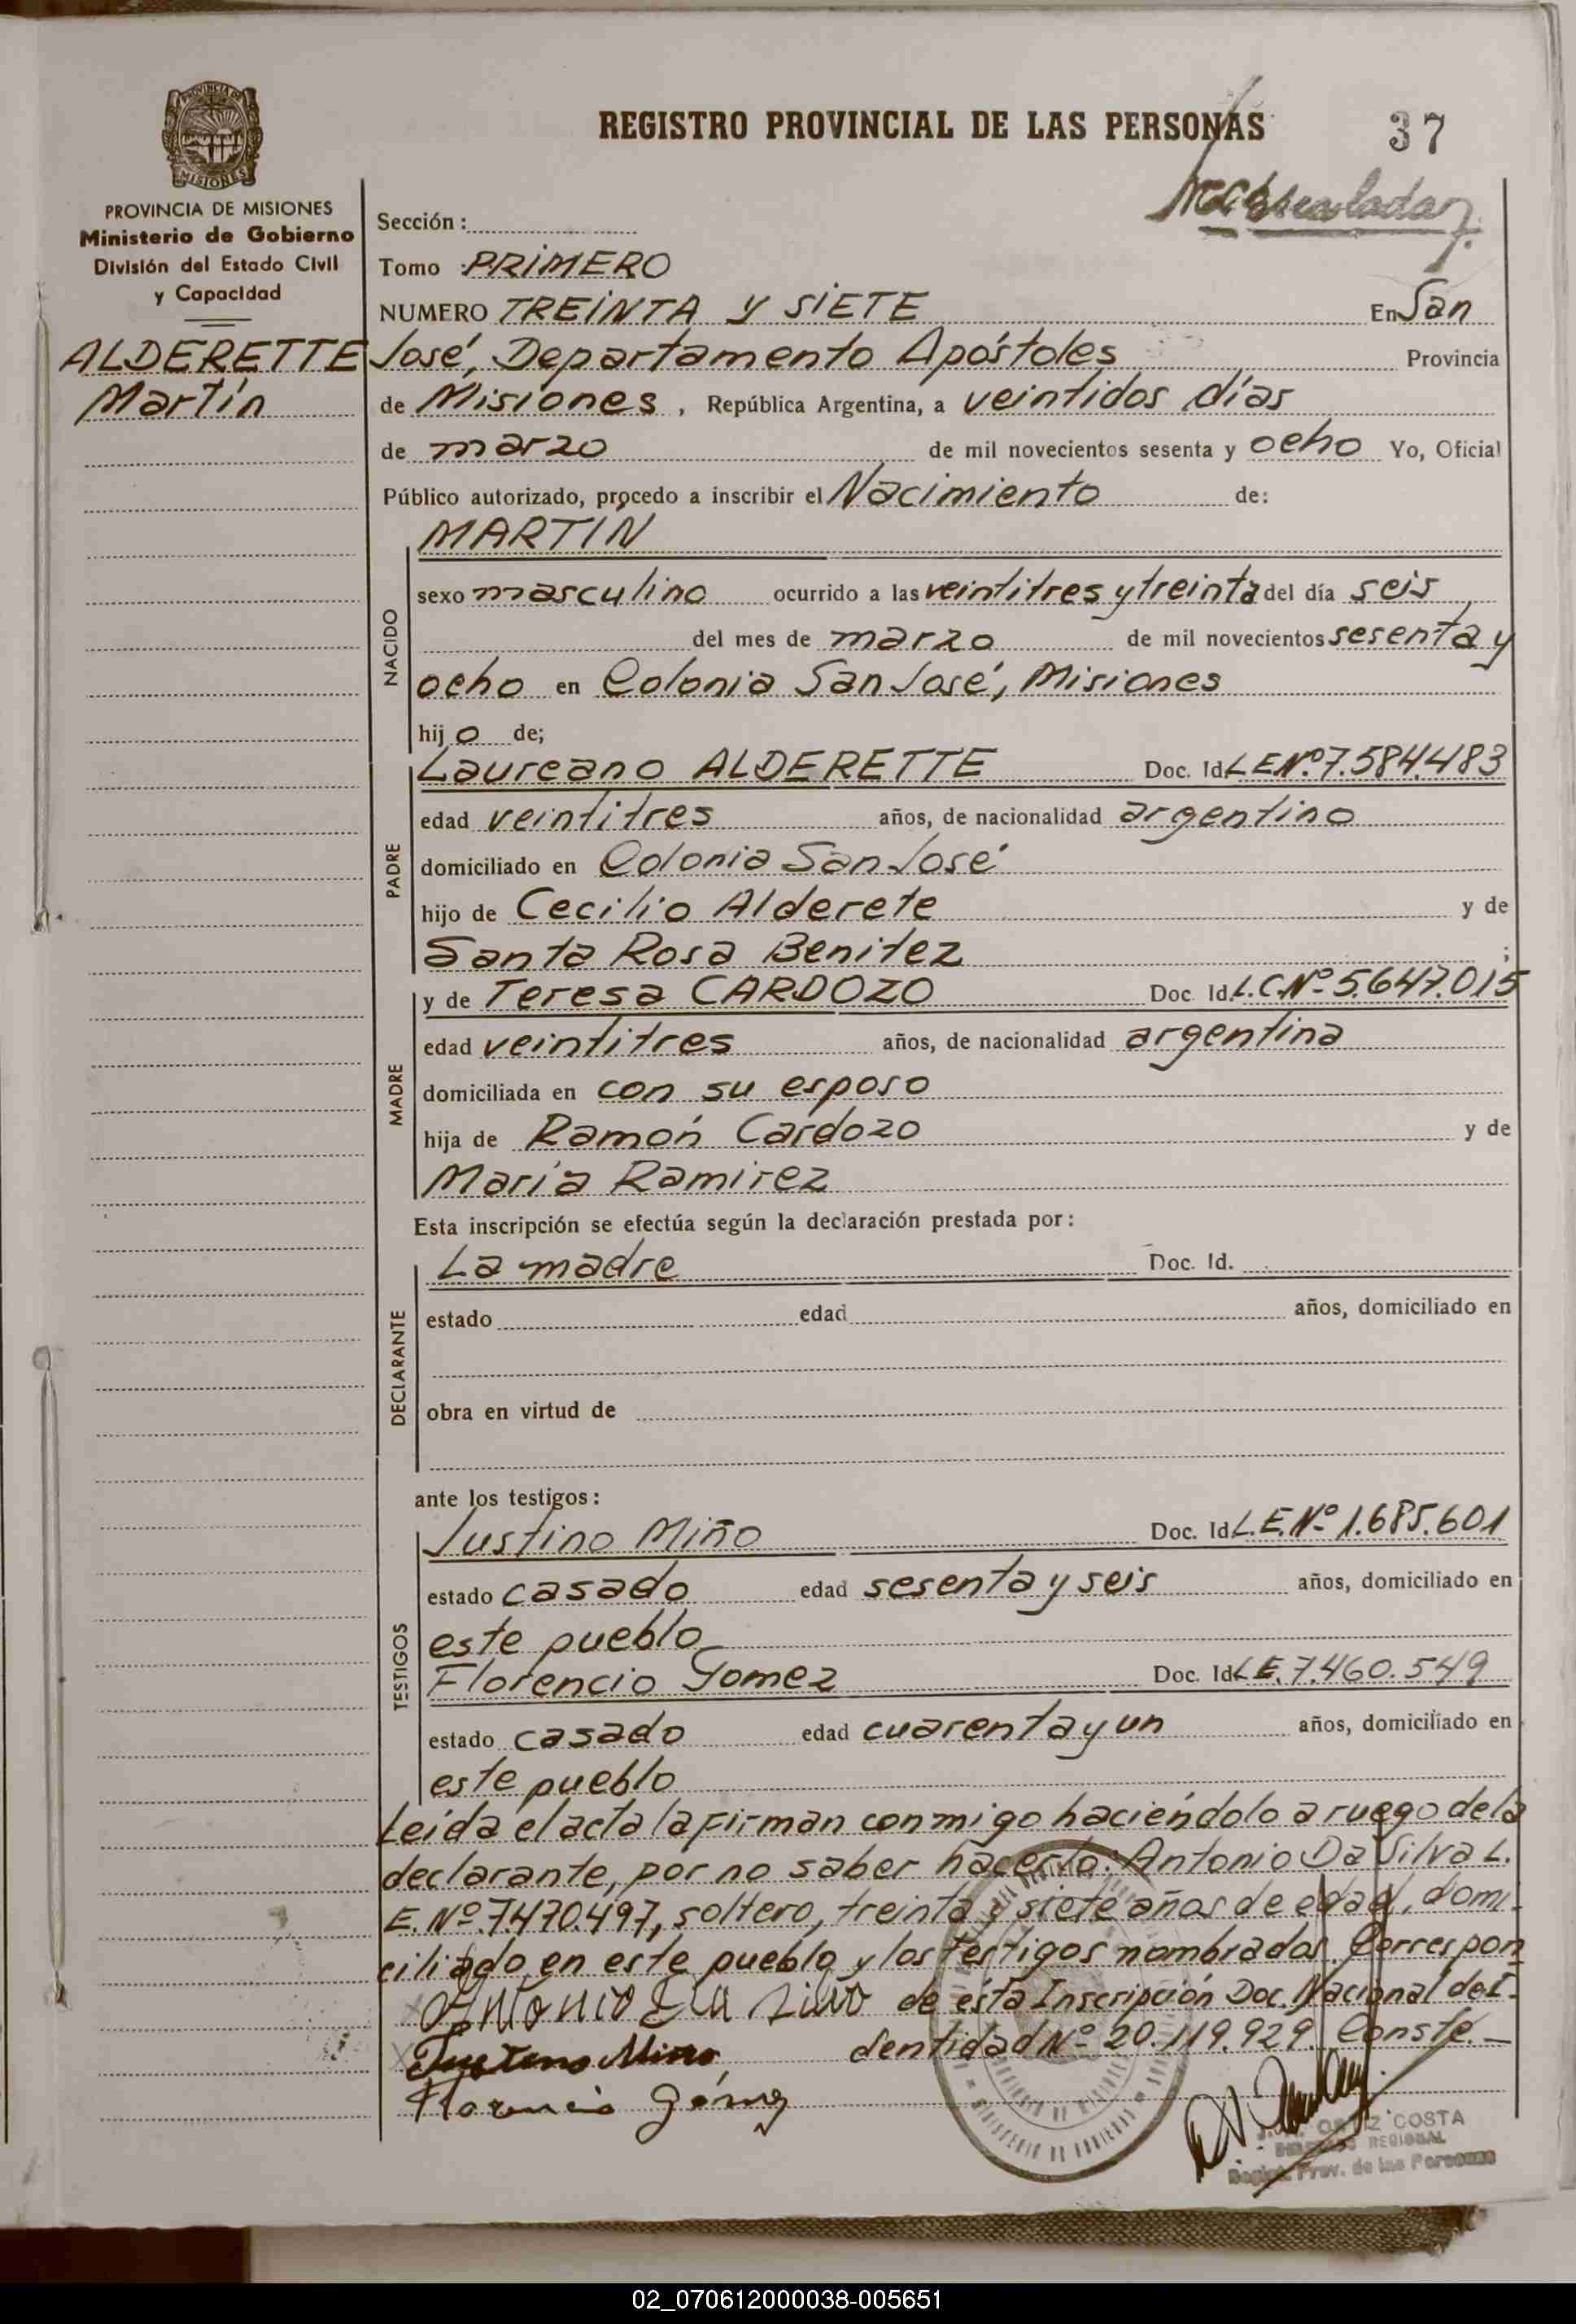 REGISTRO PROVINCIAL DE LAS PERSONAS
37
PROVINCIA DE MISIONES
Ministerio de Gobierno
División del Estado Civil
y Capacidad
ALDERETTE
Martín
Sección :
Tomo PRIMERO
NUMERO TREINTA y SIETE En San
José, Departamento Apóstoles Provincia
de Misiones , República Argentina, a veintidos días
de marzo de mil novecientos sesenta y ocho Yo, Oficial
Público autorizado, procedo a inscribir el Nacimiento de:
MARTIN
NACIDO
sexo masculino ocurrido a las veintitres y treinta del día seis
del mes de marzo de mil novecientos sesenta y
ocho en Colonia San José, Misiones
hij o de;
PADRE
Laureano ALDERETTE Doc. Id. L.E.Nº.7.584.483
edad veintitres años, de nacionalidad argentino
domiciliado en Colonia San José
hijo de Cecilio Alderete y de
Santa Rosa Benitez ;
MADRE
y de Teresa CARDOZO Doc. Id. L.C.Nº 5.647.015
edad veintitres años, de nacionalidad argentina
domiciliada en con su esposo
hija de Ramón Cardozo y de
María Ramirez
Esta inscripción se efectúa según la declaración prestada por :
DECLARANTE
La madre Doc. Id.
estado edad años, domiciliado en
obra en virtud de
ante los testigos :
TESTIGOS
Justino Miño Doc. Id. L.E.Nº 1.685.601
estado casado edad sesenta y seis años, domiciliado en
este pueblo
Florencio Gomez Doc. Id. L.E. 7.460.549
estado casado edad cuarenta y un años, domiciliado en
este pueblo
Leída el acta la firman conmigo haciéndolo a ruego de la
declarante, por no saber hacerlo: Antonio Da Silva L.
E. Nº 7.470.497, soltero, treinta y siete años de edad, domi-
ciliado en este pueblo y los testigos nombrados Correspon
Antonio Da Silva de ésta Inscripción Doc. Nacional de I-
dentidad Nº 20.119.929. Conste.—
Justino Miño
Florencio Gómez
ORTIZ COSTA
REGIONAL
Prov. de las Personas
02_070612000038-005651